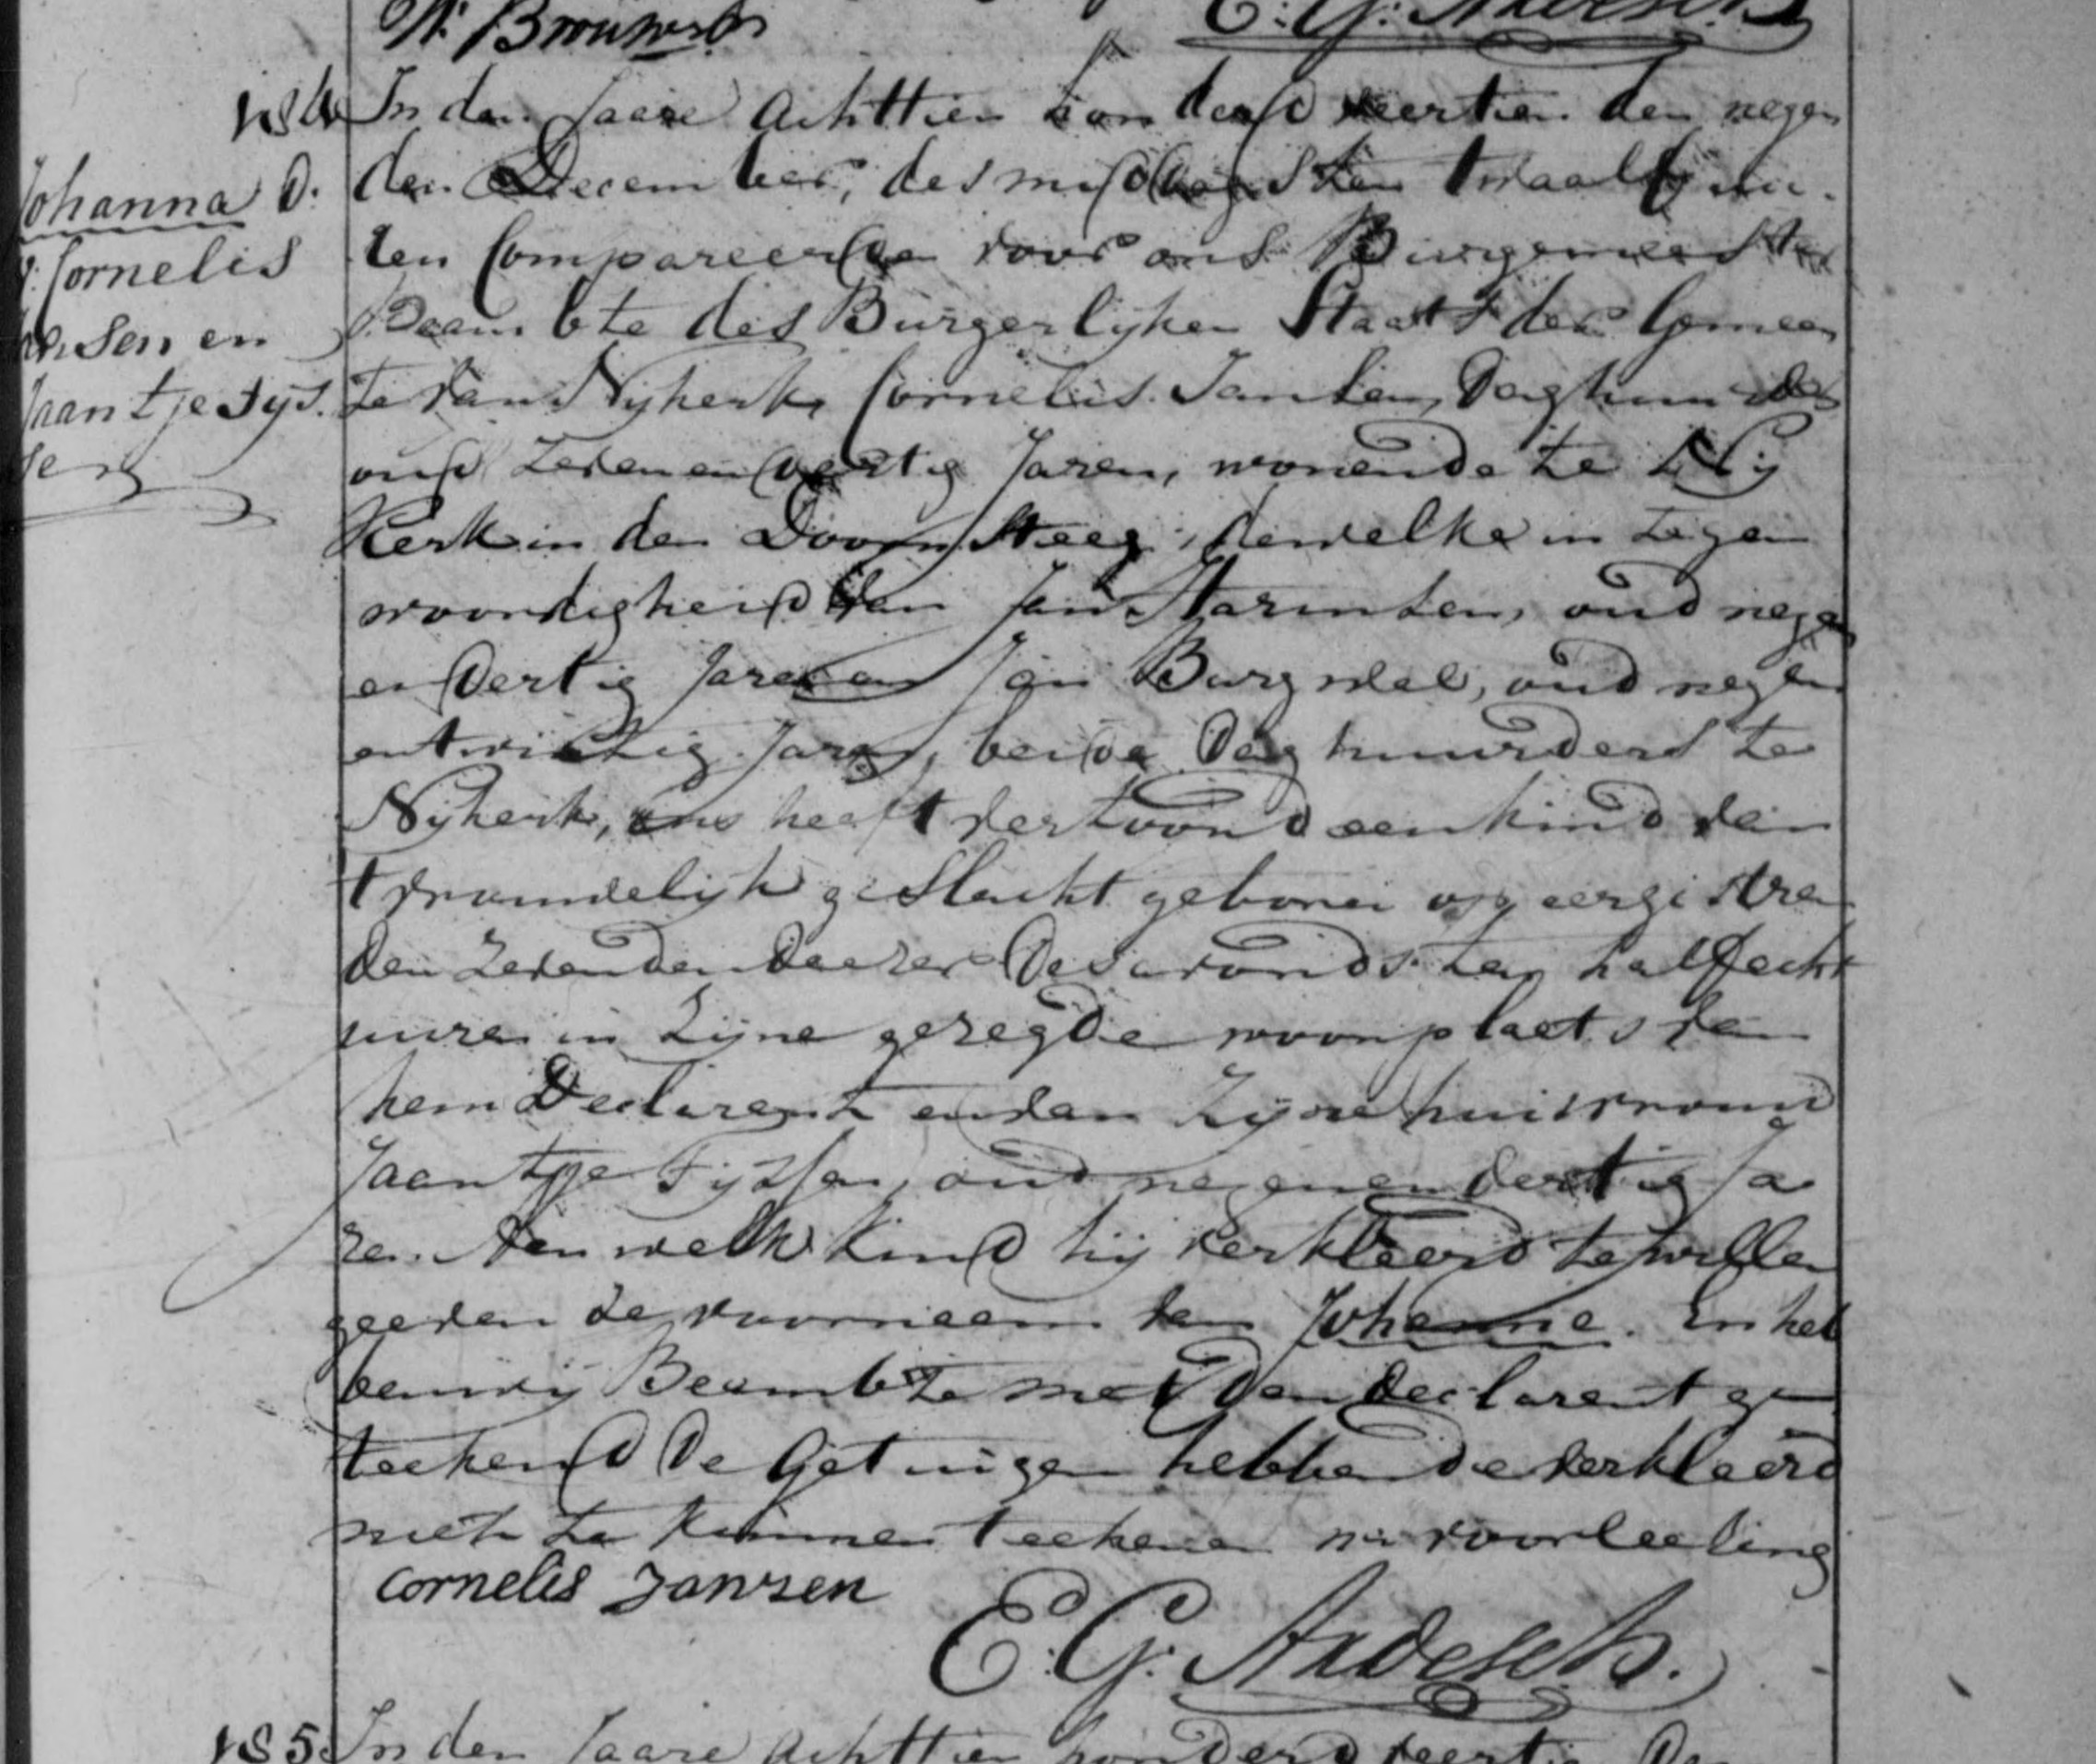 W. Brouwer
E: G: Ardesch
184 In den Jaare Achttien honderd veertien den negen
den December, des middags ten twaalf uu-
ren Compareerde voor ons Burgemeester
Beambte des Burgerlyken Staats der Gemeen
te van Nykerk, Cornelis Jansen, Daghuurder
oud zeven en veertig Jaren, wonende te Ny
kerk in den Doorn Steeg, dewelke in tegen
woordigheid van Jan oud negen
en dertig Jaren en Jan Burgwal, oud negen
entwintig Jaren, beide Daghuurders te
Nykerk, ons heeft vertoond een kind van
t vrouwelyk geslacht geboren op eergistren
den zevenden deezer des avonds ten half acht
uuren in zyne gezegde woonplaats van
hem Declarant en van zyne huisvrouw
Jaantje Tyssen, oud negenendertig Ja
ren. Aan welk kind hij verklaard te willen
geeven de voornaam van Johanna. En heb
ben wij Beambte met den declarant ge
teekend De Getuigen hebbende verklaard
niet te kunnen teekenen na voorleesing
Cornelis Janzen
E: G: Ardesch.
Johanna D.
v: Cornelis
Jansen en
Jaantje Tys.
sen
185. In den Jaare Achttien honderd veertien Den